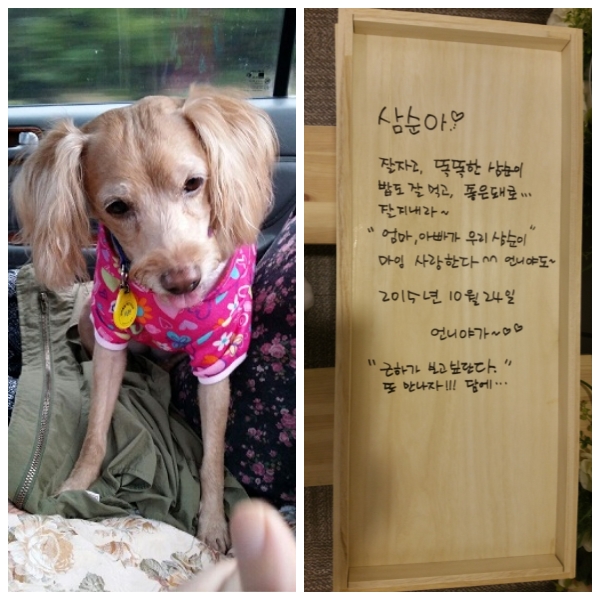 삼순아♡
잘자고, 똑똑한 삼순이
밥도 잘 먹고, 좋은데로...
잘지내라~
"엄마, 아빠가 우리 삼순이"
마이 사랑한다^^ 언니야도~
2015년 10월 24일
언니야가~♡♡
"근하가 보고싶단다."
또 만나자!!! 담에...